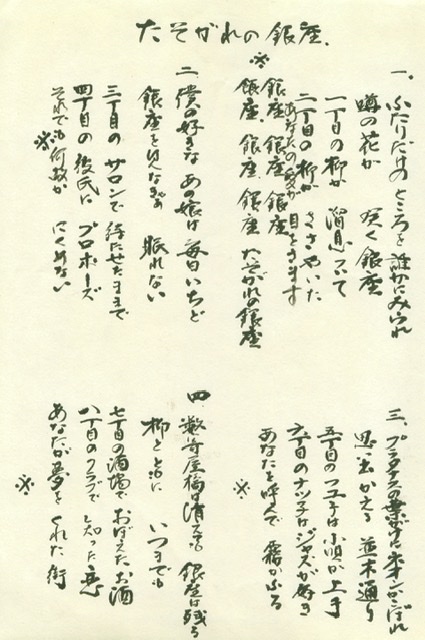 たそがれの銀座
一、ふたりだけのところを誰かにみられ
噂の花が 咲く銀座
一丁目の柳が 溜息ついて
二丁目の柳が ささやいた
あなたの愛が 目をうるます
※
銀座、銀座、銀座
銀座、銀座、銀座 たそがれの銀座
二、僕の好きな あの娘は 毎日いちど
銀座を見なきゃ 眠れない
三丁目の サロンで 待たせたままで
四丁目の 彼氏に プロポーズ
それでも何故か にくめない
※
三、プラタナスの葉かげにネオンがこぼれ
思い出かえる 並木通り
五丁目のフユ子は小唄が上手
六丁目のナツ子はジャズが好き
あなたを呼んで 霧がふる
※
四、数寄屋橋は消えても 銀座は残る
柳とともに いつまでも
七丁目の酒場で おぼえたお酒
八丁目のクラブで 知った恋
あなたが夢を くれた街
※